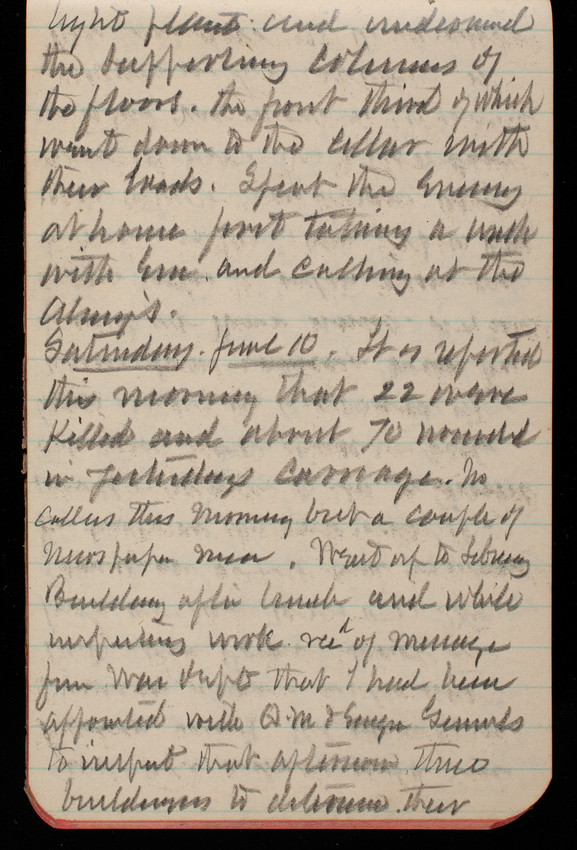 light plant and undermined
the supporting columns of
the floors. the front third of which
went down to the cellar with
their loads. Spent the evening
at home first taking a walk
with Em. and calling at the
Almy's.
Saturday. June 10. It is reported
this morning that 22 were
killed and about 70 wounded
in yesterdays carnage. No
callers this morning but a couple of
newspaper men. Went up to Library
Building after lunch and while
inspecting work rec'd of message
from War Dept that I had been
appointed with Q.M & Engr Generals
to inspect that afternoon three
buildings to determine their